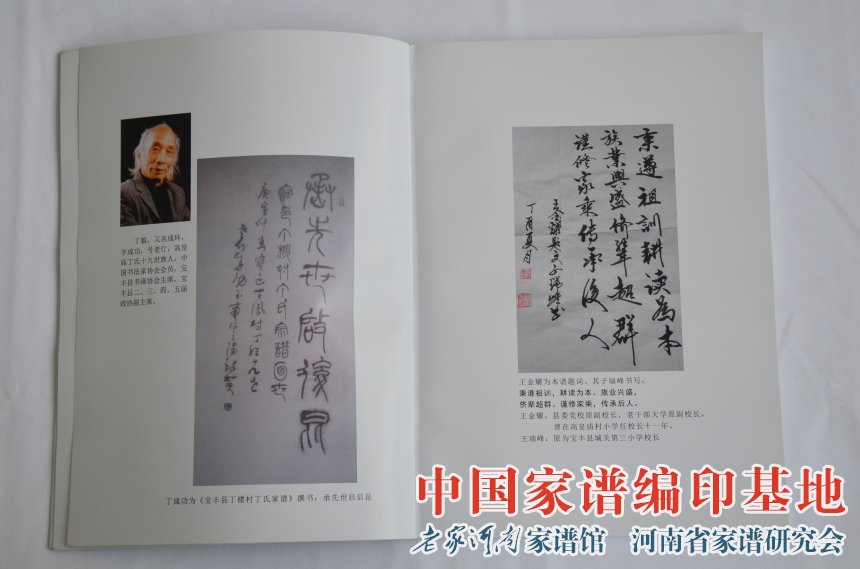 丁毅，又名成环，
字成功，号老仃，高皇
庙丁氏十九世族人，中
国书法家协会会员，宝
丰县书画协会主席，宝
丰县二、三、四、五届
政协副主席。
承先世启后昆
丁成功为《宝丰县丁楼村丁氏家谱》撰书：承先世启后昆
秉遵祖训耕读为本
族业兴盛侪辈超群
谨修家乘传承后人
丁酉夏月
王金耀为本谱题词，其子瑞峰书写：
秉遵祖训，耕读为本。族业兴盛，
侪辈超群。谨修家乘，传承后人。
王金耀，县委党校原副校长，老干部大学原副校长，
曾在高皇庙村小学任校长十一年。
王瑞峰：原为宝丰县城关第三小学校长
中国家谱编印基地
老家河南家谱馆 河南省家谱研究会